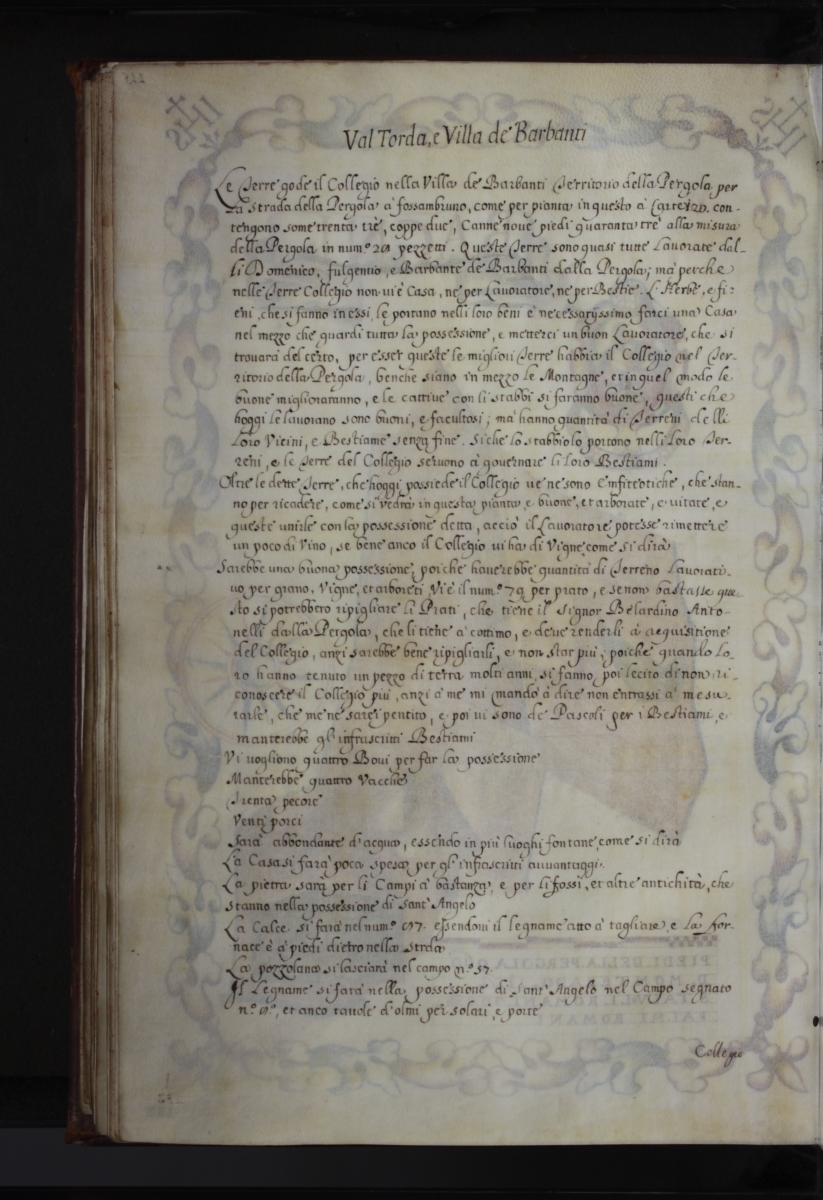 Val Torda, e Villa de Barbanti
Le Terre gode il Collegio nella Villa de Barbanti Territorio della Pergola per
La strada della Pergola à fossambruno, come per pianta in questo à Carte con-
tengono some trenta trè, coppe due, Canne nove piedi quaranta trè alla misura
della Pergola in num.º pezzetti. Queste Terre sono quasi tutte Lavorate dal-
li Domenico, fulgentio, e Barbante de Barbanti dalla Pergola; mà perche
nelle Terre Collegio non vi è Casa, ne per Lavoratore, ne per Bestie. L'Herbe, e fi-
eni, che si fanno in essi le portano nelli loro beni è necessaryssimo farci una Casa
nel mezzo che guardi tutta la possessione, e metterci un buon Lavoratore, che si
trovarà del certo, per esser queste le migliori Terre habbia il Collegio nel Ter-
ritorio della Pergola, benche siano in mezzo le Montagne, et in quel modo le
buone miglioraranno, e le cattive con li stabbi si faranno buone, questi che
hoggi le lavorano sono buoni, e facultosi; mà hanno quantità di Terreni delli
Loro Vicini, e Bestiame senza fine. Siche lo stabbiolo portono nelli loro Ter-
reni, e le Terre del Collegio servono à governare li loro Bestiami.
Oltre le dette Terre, che hoggi possiede il Collegio ve ne sono Emfiteotiche, che stan-
no per ricadere, come si vedrà in questa pianta e buone, et arborate, e vitate, e
queste unirle con la possessione detta, acciò il Lavoratore potesse rimettere
un poco di Vino, se bene anco il Collegio vi ha di Vigne come si dirà
Sarebbe una buona possessione, poiche haverebbe quantità di Terreno Lavorati-
vo per grano, Vigne, et arboreti Vi è il num.º 79 per prato, e se non bastasse que-
sto si potrebbero ripigliare li Prati, che tiene il Signor Belardino Anto-
nelli dalla Pergola, che li tiene à cottimo, e deve renderli à acquisitione
del Collegio, anzi sarebbe bene ripigliarli, e non star più, poiche quando lo-
ro hanno tenuto un pezzo di terra molti anni, si fanno poi lecito di non ri-
conoscere il Collegio più, anzi à me mi mandò à dire non entrassi à mesu-
rarle, che me ne sarei pentito, e poi vi sono de Pascoli per i Bestiami, e
manterebbe gl'infrascritti Bestiami
Vi vogliono quattro Bovi per far la possessione
Manterebbe quattro Vacche
Trenta pecore
Venti porci
Sarà abbondante d'acqua, essendo in più luoghi fontane, come si dirà
La Casa si farà poca spesa per gl'infrascritti avvantaggi.
La pietra sarà per li Campi à bastanza, e per li fossi, et altre antichità, che
stanno nella possessione di Sant'Angelo
La Calce si farà nel num.º essendovi il legname atto à tagliare, e la for-
nace è à piedi dietro nella strda
La pozzolana si lasciarà nel campo n.º 57.
Il Legname si farà nella possessione di Sant'Angelo nel Campo segnato
n.º et anco tavole d'olmi per solari, e porte
Collegio